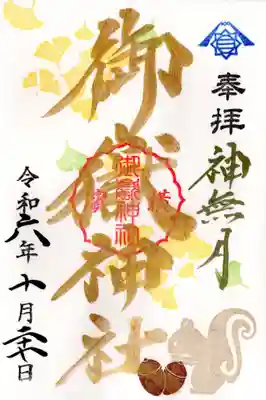 奉拝
神無月
御嶽神社
御嶽神社
令和六年十月二十七日